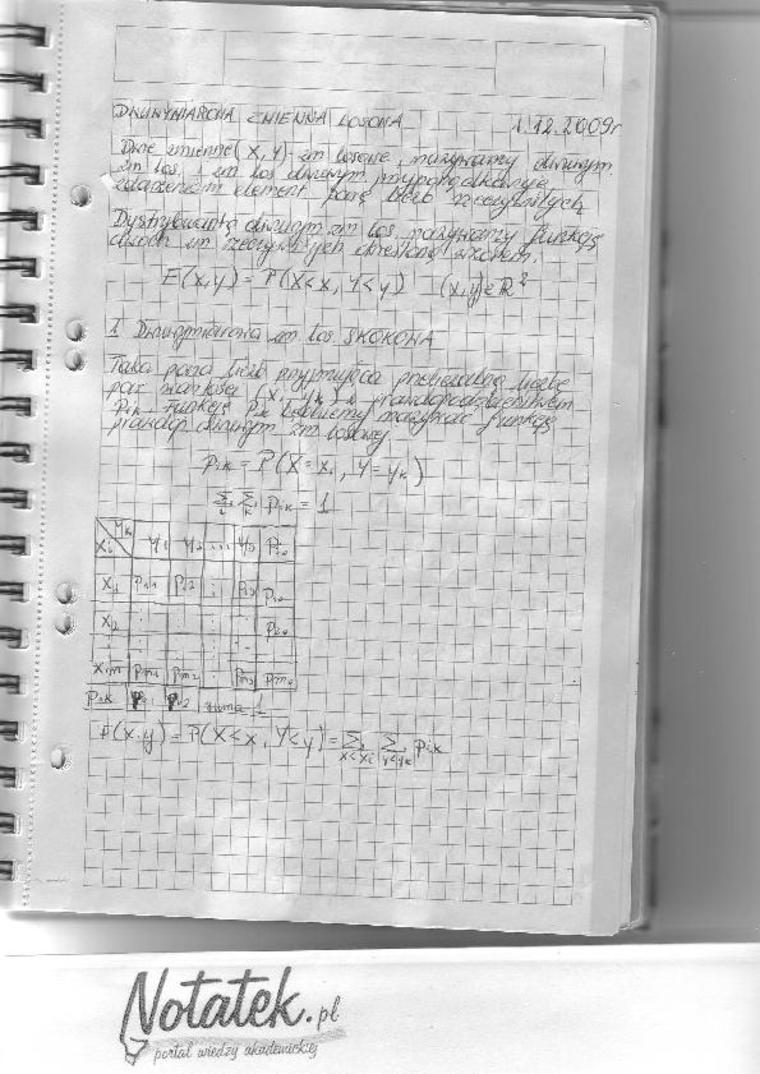 DWUWYMIAROWA ZMIENNA LOSOWA 1.12.2009r
Dwie zmienne (X, Y) zm losowe, nazywamy dwuwym.
zm los. i zm los dwuwym, przyporządkowuje
zdarzeniom element. parę liczb rzeczywistych
Dystrybuantą dwuwym zm los. nazywamy funkcję
dwóch zm rzeczywistych określoną wzorem:
F(x,y) = P(X<x, Y<y) (x,y)∈R²
1 Dwuwymiarowa zm los. SKOKOWA
Taka para liczb przyjmująca przeliczalną liczbę
par wartości (xi, yk) z prawdopodobieństwem
Pik. Funkcję Pik będziemy nazywać funkcją
prawdop. dwuwym zm losowej.
pik = P(X=xi, Y=yk)
∑i ∑k pik = 1
yk
xi y1 y2 ... Pi.
x1 p11 p12 : p1.
x2 : : : p2.
xm pm1 pm2 : pm.
p.k p.1 p.2 suma 1
F(x.y) = P(X<x, Y<y) = ∑x<xi ∑y<yk pik
Notatek.pl
portal wiedzy akademickiej